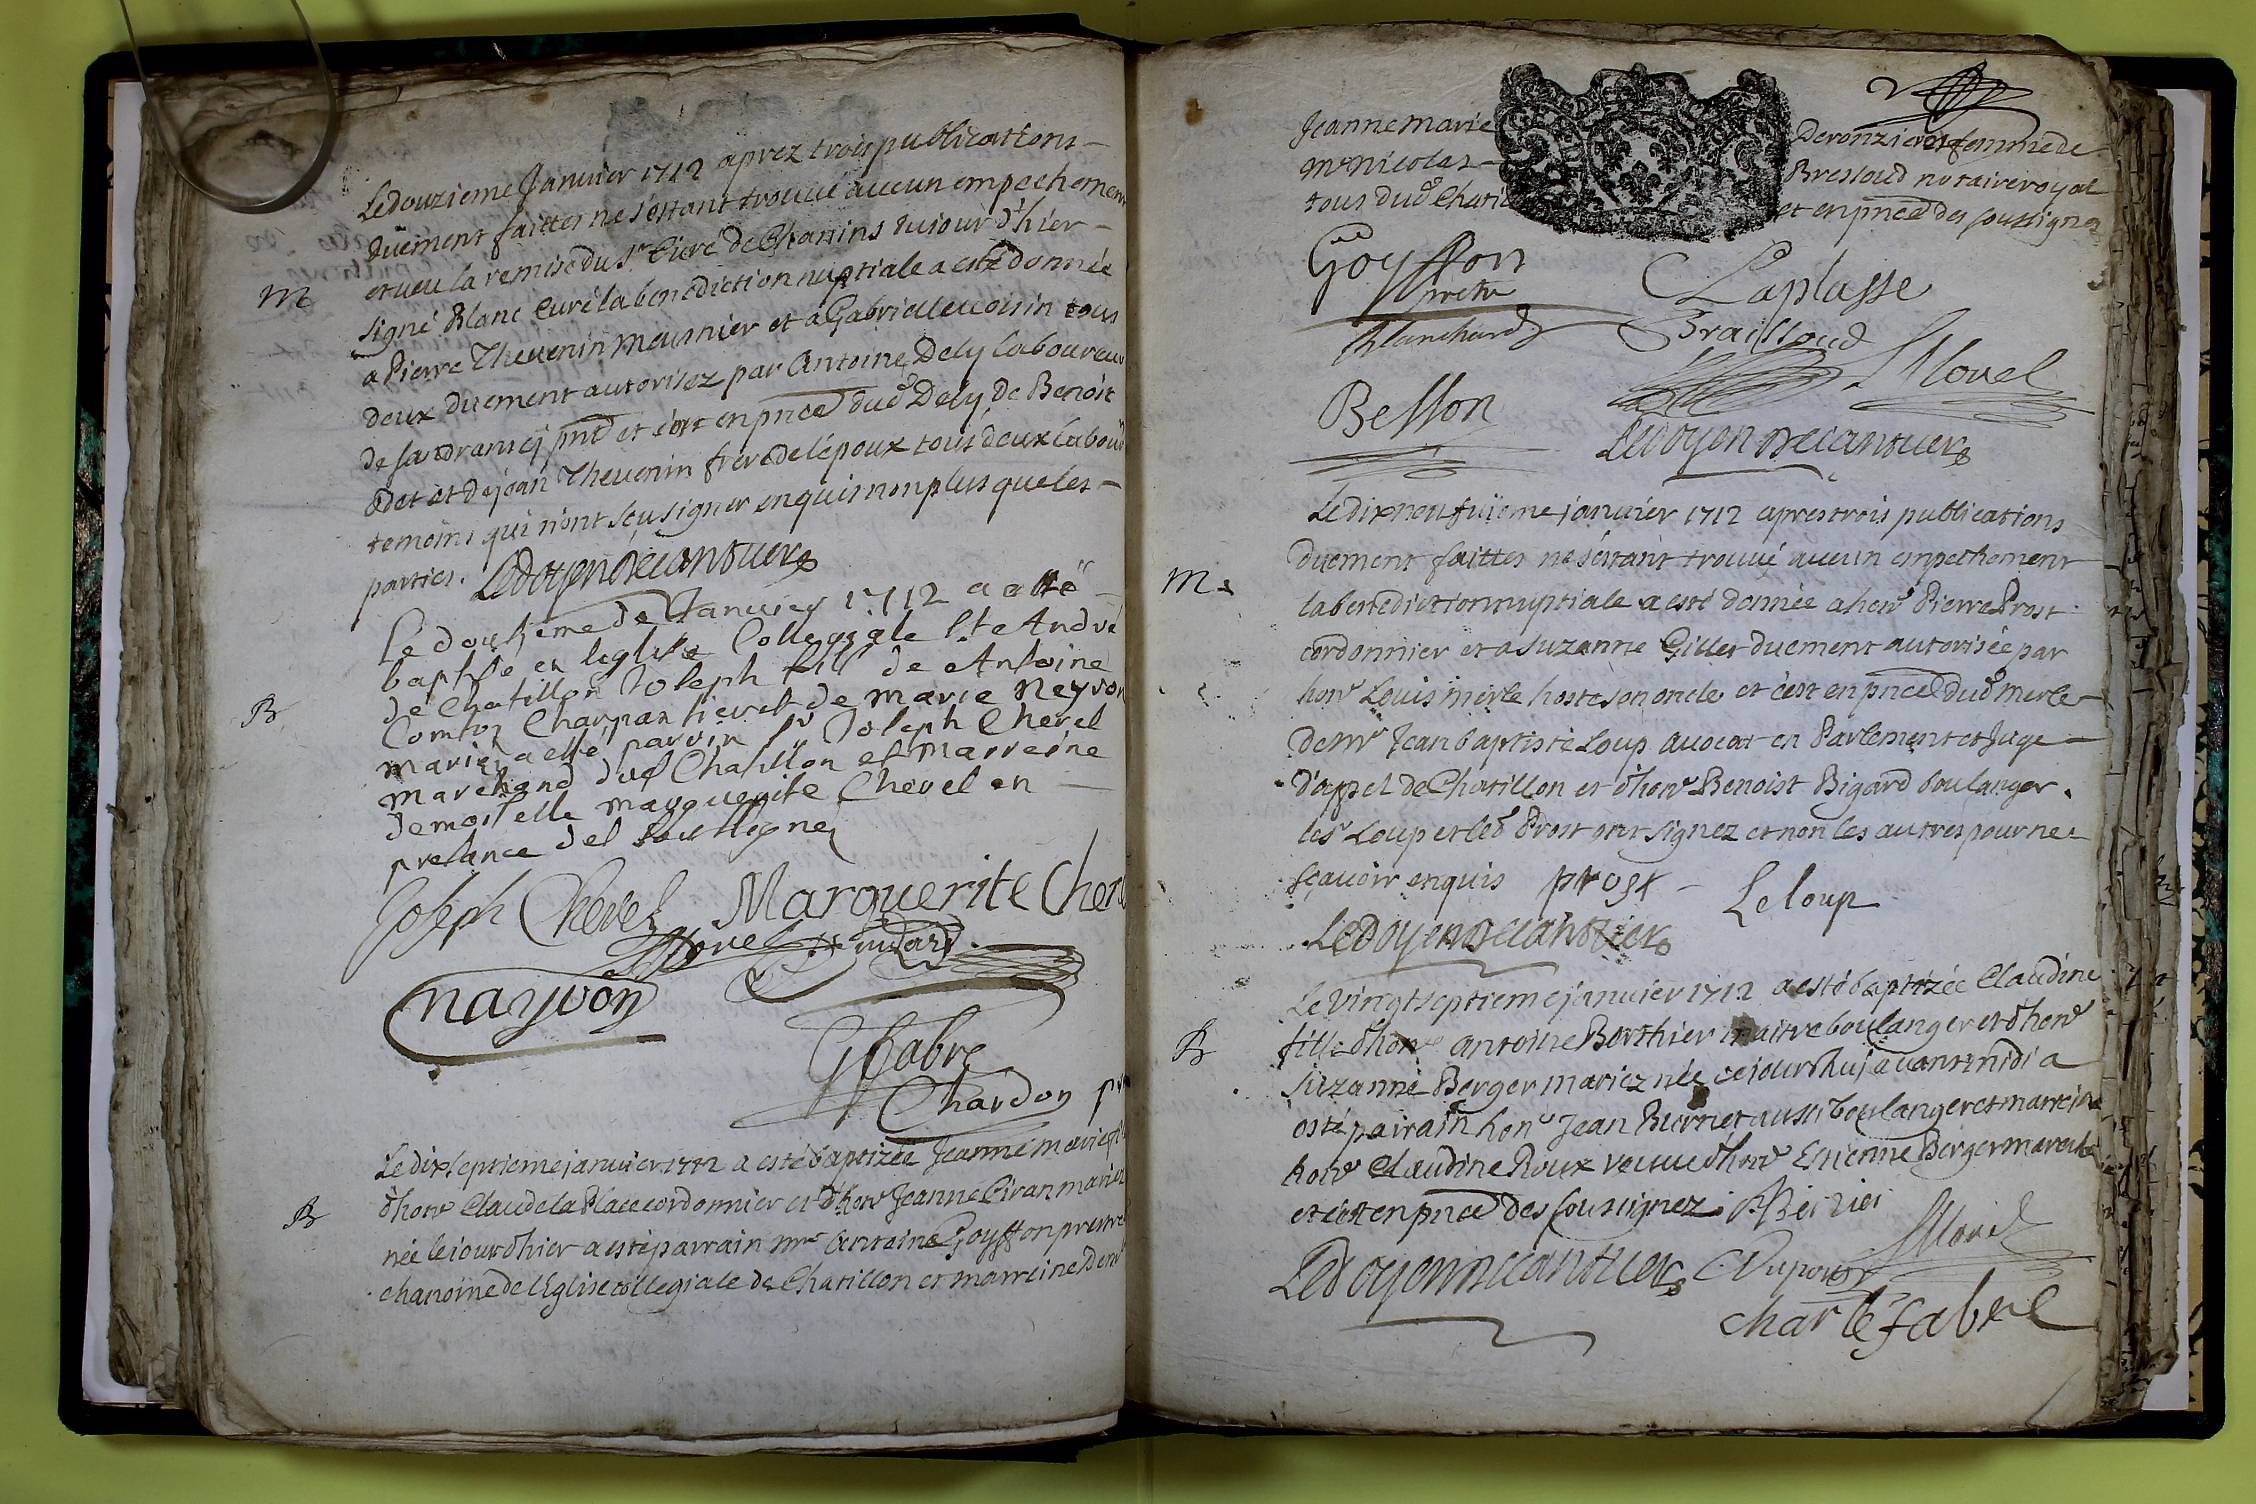 Le douzieme Janvier 1712 aprez trois publications
duement faittes ne s'estant trouvé aucun empechement
et veu la remise du Sr Curé de Chanins du jour d'hier
signé Blanc Curé la benediction nuptiale a esté donnée
M
a Pierre Thevenin meusnier et a Gabrielle voisin tous
deux duement autorisez par Antoine Dely laboureur
de Sandrans cy pnt et c'est en pnce dud Dely, de Benoit
et de jean Thevenin frere de l'époux tous deux labour
temoins qui n'ont sçu signer enquis non plus que les
parties. Ledoyen Decanduers
Le douzieme de Janvier 1712 a etté
baptise en leglise Colleggale St André
de Chatillon Joseph fils de Antoine
Comton Charpantier et de marie Neyvon
B
mariez a esté parvin sr Joseph Chevel
marchand dud Chatillon et Marreine
demoiselle marguerite Chevel en
presance des soussignez
Joseph Chevel Marguerite Chevel
Morel
nayvon
G Fabre
Chardon
Le dix septieme janvier 1712 a esté baptizée Jeanne Marie
B
d'hone Claude la Place cordonnier et d'hone Jeanne Civan mariez
née le jour d'hier a esté parrain mre Antoine Goyffon prestre
chanoine de l'Eglise collegiale de Chatillon et marreine
Jeanne marie Deronzieres femme de
Mre Nicolas Bressoud notaire royal
tous dud Chatil et en pnce des soussignez
Goyffon
pretre
Laplasse
Blanchard
Braissoud
Morel
Besson
Ledoyen Decanduers
Le dix neufvieme janvier 1712 apres trois publications
duement faittes ne s'estant trouvé aucun empechement
M.
la benediction nuptiale a esté donnée a hone Pierre Prost
cordonnier et a Suzanne Gillet duement autorisée par
hone Louis merle hoste son oncle et c'est en pnce dud merle
de mre Jean baptiste Loup avocat en Parlement et Juge
d'appel de Chatillon et d'hone Benoist Bigard boulanger.
les Loup et led Prost ont signez et non les autres pour ne
sçavoir enquis prost Le loup
Ledoyen Decanduers
Le vingt septieme janvier 1712 a esté baptizée Claudine
B
fille d'hone antoine Berthier maitre boulanger et d'hone
Suzanne Berger mariez née ce jourd'huj avant midi a
esté pairain hone Jean Bernier aussi boulanger et marreine
hone Claudine Roux veuve d'hone Estienne Berger march
et c'est en pnce des soussignez
Morel
Ledoyen Decanduers Dupont
charle fabre